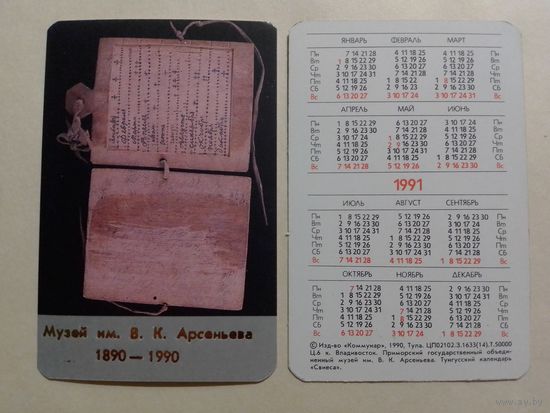 Музей им. В. К. Арсеньева
1890 — 1990
ЯНВАРЬ ФЕВРАЛЬ МАРТ
Пн 7 14 21 28 4 11 18 25 4 11 18 25
Вт 1 8 15 22 29 5 12 19 26 5 12 19 26
Ср 2 9 16 23 30 6 13 20 27 6 13 20 27
Чт 3 10 17 24 31 7 14 21 28 7 14 21 28
Пт 4 11 18 25 1 8 15 22 1 8 15 22 29
Сб 5 12 19 26 2 9 16 23 2 9 16 23 30
Вс 6 13 20 27 3 10 17 24 3 10 17 24 31
АПРЕЛЬ МАЙ ИЮНЬ
Пн 1 8 15 22 29 6 13 20 27 3 10 17 24
Вт 2 9 16 23 30 7 14 21 28 4 11 18 25
Ср 3 10 17 24 1 8 15 22 29 5 12 19 26
Чт 4 11 18 25 2 9 16 23 30 6 13 20 27
Пт 5 12 19 26 3 10 17 24 31 7 14 21 28
Сб 6 13 20 27 4 11 18 25 1 8 15 22 29
Вс 7 14 21 28 5 12 19 26 2 9 16 23 30
1991
ИЮЛЬ АВГУСТ СЕНТЯБРЬ
Пн 1 8 15 22 29 5 12 19 26 2 9 16 23 30
Вт 2 9 16 23 30 6 13 20 27 3 10 17 24
Ср 3 10 17 24 31 7 14 21 28 4 11 18 25
Чт 4 11 18 25 1 8 15 22 29 5 12 19 26
Пт 5 12 19 26 2 9 16 23 30 6 13 20 27
Сб 6 13 20 27 3 10 17 24 31 7 14 21 28
Вс 7 14 21 28 4 11 18 25 1 8 15 22 29
ОКТЯБРЬ НОЯБРЬ ДЕКАБРЬ
Пн 7 14 21 28 4 11 18 25 2 9 16 23 30
Вт 1 8 15 22 29 5 12 19 26 3 10 17 24 31
Ср 2 9 16 23 30 6 13 20 27 4 11 18 25
Чт 3 10 17 24 31 7 14 21 28 5 12 19 26
Пт 4 11 18 25 1 8 15 22 29 6 13 20 27
Сб 5 12 19 26 2 9 16 23 30 7 14 21 28
Вс 6 13 20 27 3 10 17 24 1 8 15 22 29
© Изд-во «Коммунар», 1990, Тула. ЦП02102.З.1633(14).Т.50000
Ц.6 к. Владивосток. Приморский государственный объеди-
ненный музей им. В. К. Арсеньева. Тунгусский календарь
«Свиеса».